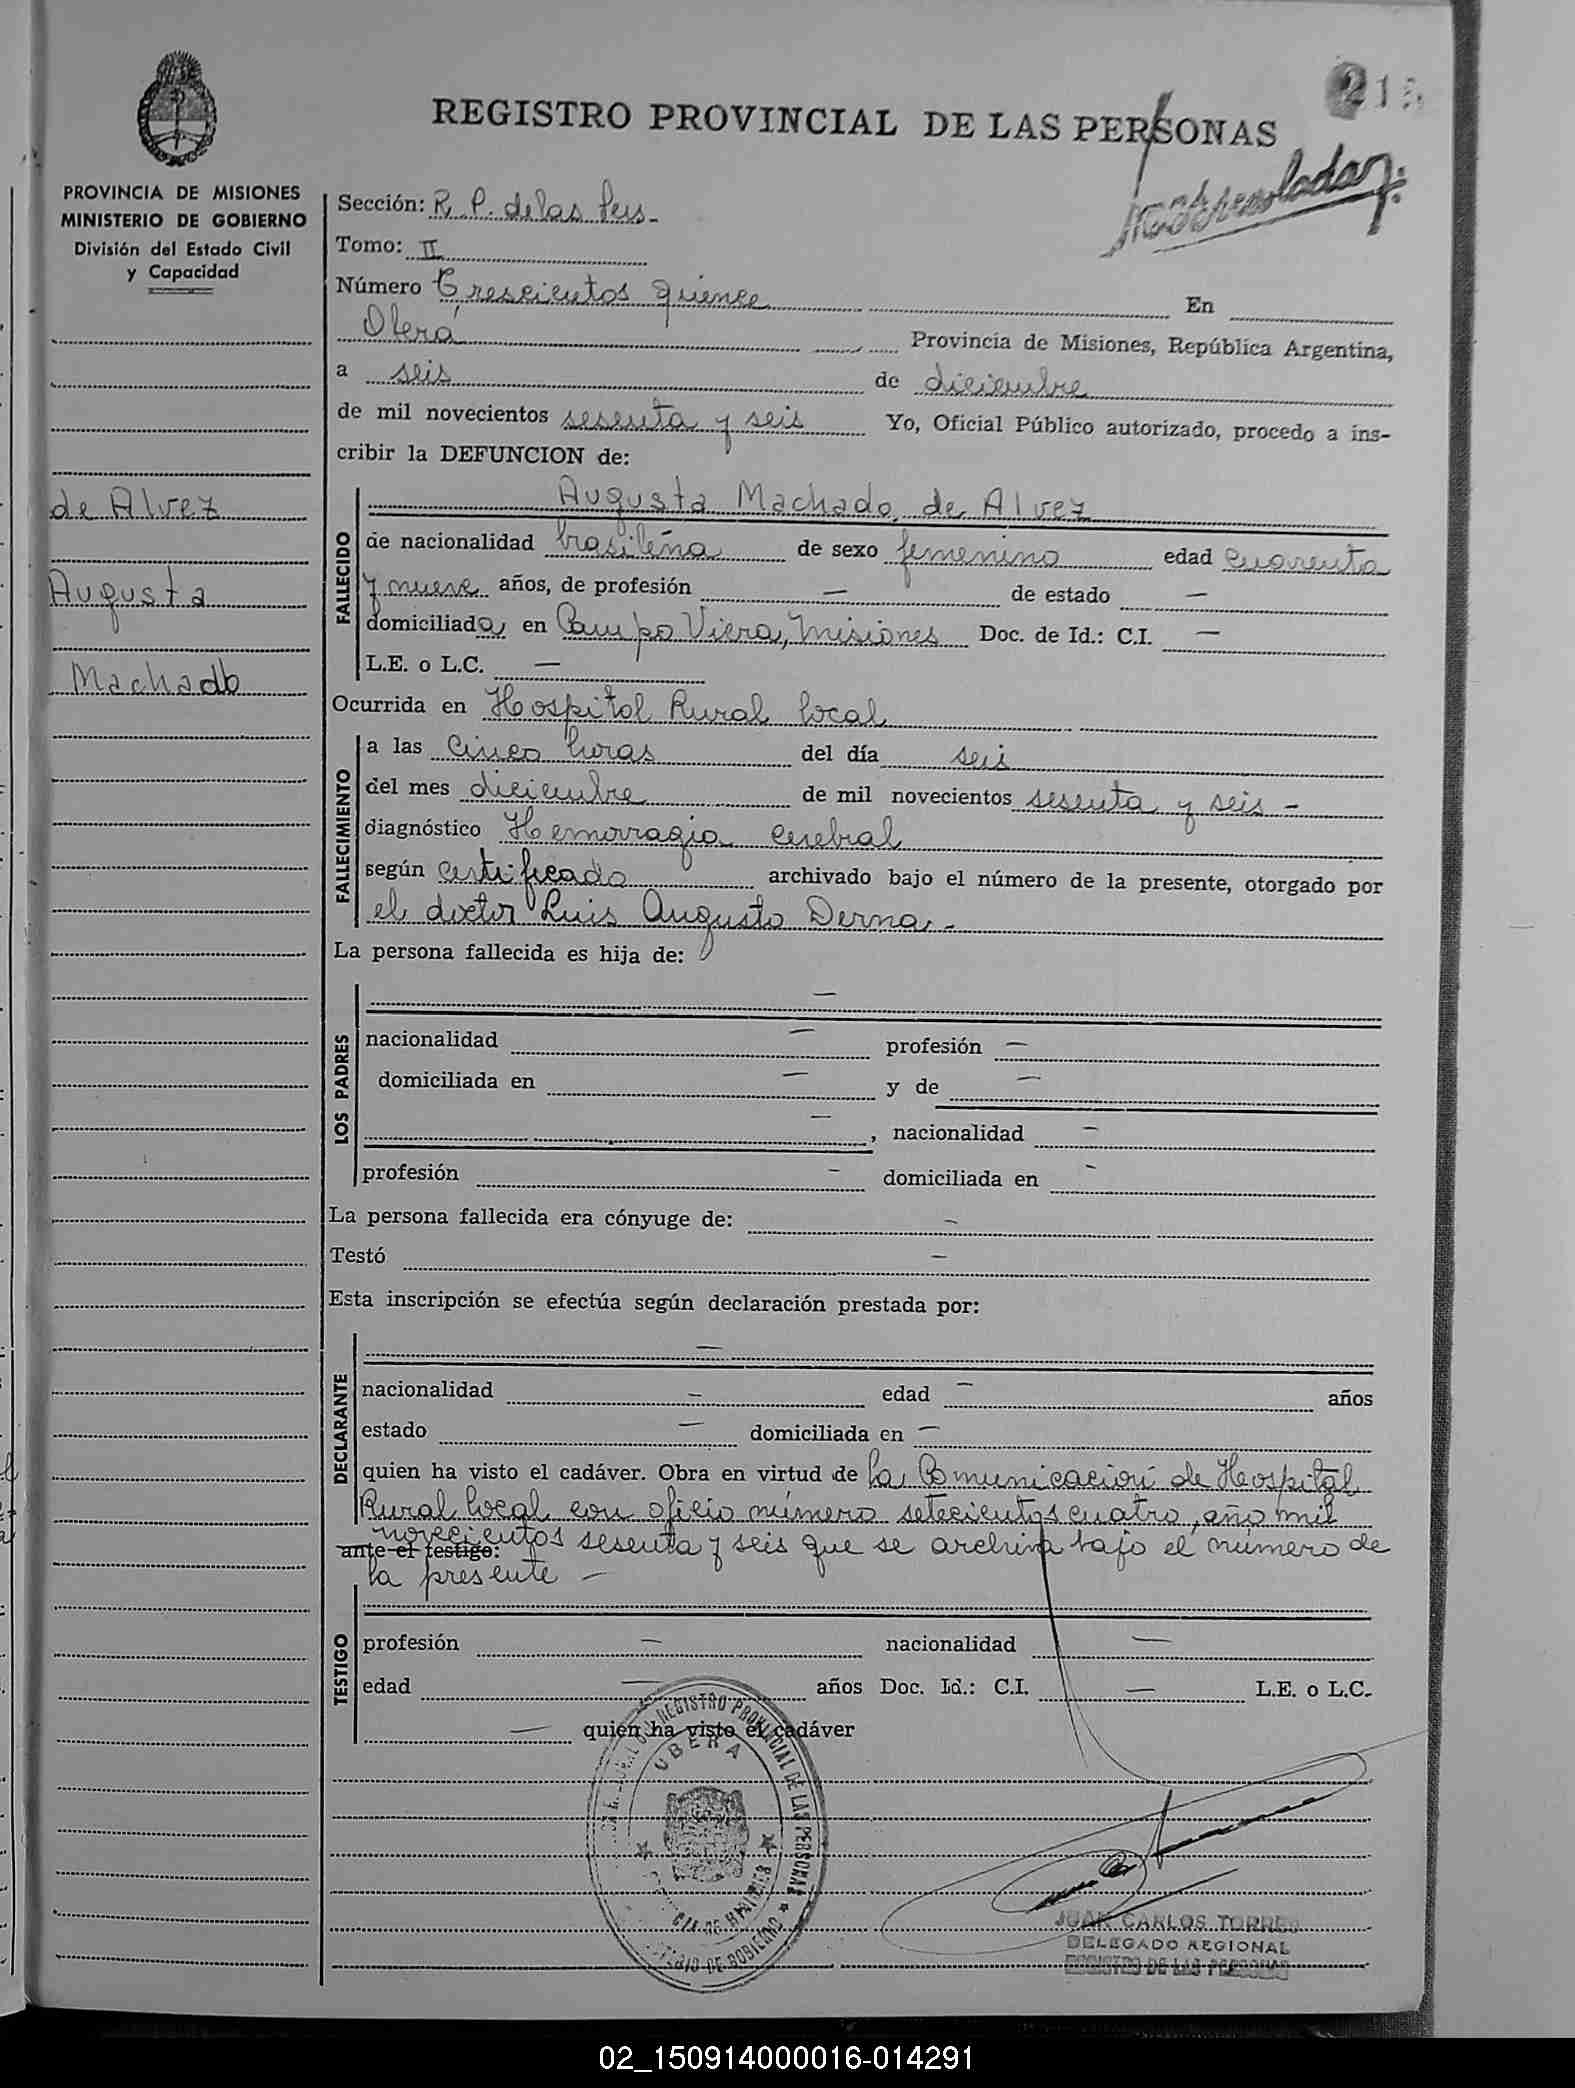 REGISTRO PROVINCIAL DE LAS PERSONAS
PROVINCIA DE MISIONES
MINISTERIO DE GOBIERNO
División del Estado Civil
y Capacidad
de Alvez
Augusta
Machado
Sección: R. P. de las Pers.
Tomo: II
Número Trescientos quince En
Oberá Provincia de Misiones, República Argentina,
a seis de diciembre
de mil novecientos sesenta y seis Yo, Oficial Público autorizado, procedo a ins-
cribir la DEFUNCION de:
Augusta Machado de Alvez
FALLECIDO
de nacionalidad brasileña de sexo femenino edad cuarenta
y nueve años, de profesión — de estado —
domiciliada en Campo Viera, Misiones Doc. de Id.: C.I. —
L.E. o L.C. —
Ocurrida en Hospital Rural local
FALLECIMIENTO
a las cinco horas del día seis
del mes diciembre de mil novecientos sesenta y seis -
diagnóstico Hemorragia cerebral
según certificado archivado bajo el número de la presente, otorgado por
el doctor Luis Augusto Derna.-
La persona fallecida es hija de:
LOS PADRES
—
nacionalidad — profesión —
domiciliada en — y de —
— , nacionalidad —
profesión - domiciliada en -
La persona fallecida era cónyuge de: -
Testó -
Esta inscripción se efectúa según declaración prestada por:
DECLARANTE
—
nacionalidad — edad — años
estado — domiciliada en —
quien ha visto el cadáver. Obra en virtud de la Comunicación de Hospital
Rural local con oficio número setecientos cuatro, año mil
novecientos sesenta y seis que se archiva bajo el número de
ante el testigo:
la presente —
TESTIGO
profesión — nacionalidad —
edad — años Doc. Id.: C.I. — L.E. o L.C.
— quien ha visto el cadáver
REGISTRO PROVINCIAL DE LAS PERSONAS
OBERA
JUAN CARLOS TORRES
DELEGADO REGIONAL
REGISTRO DE LAS PERSONAS
02_150914000016-014291